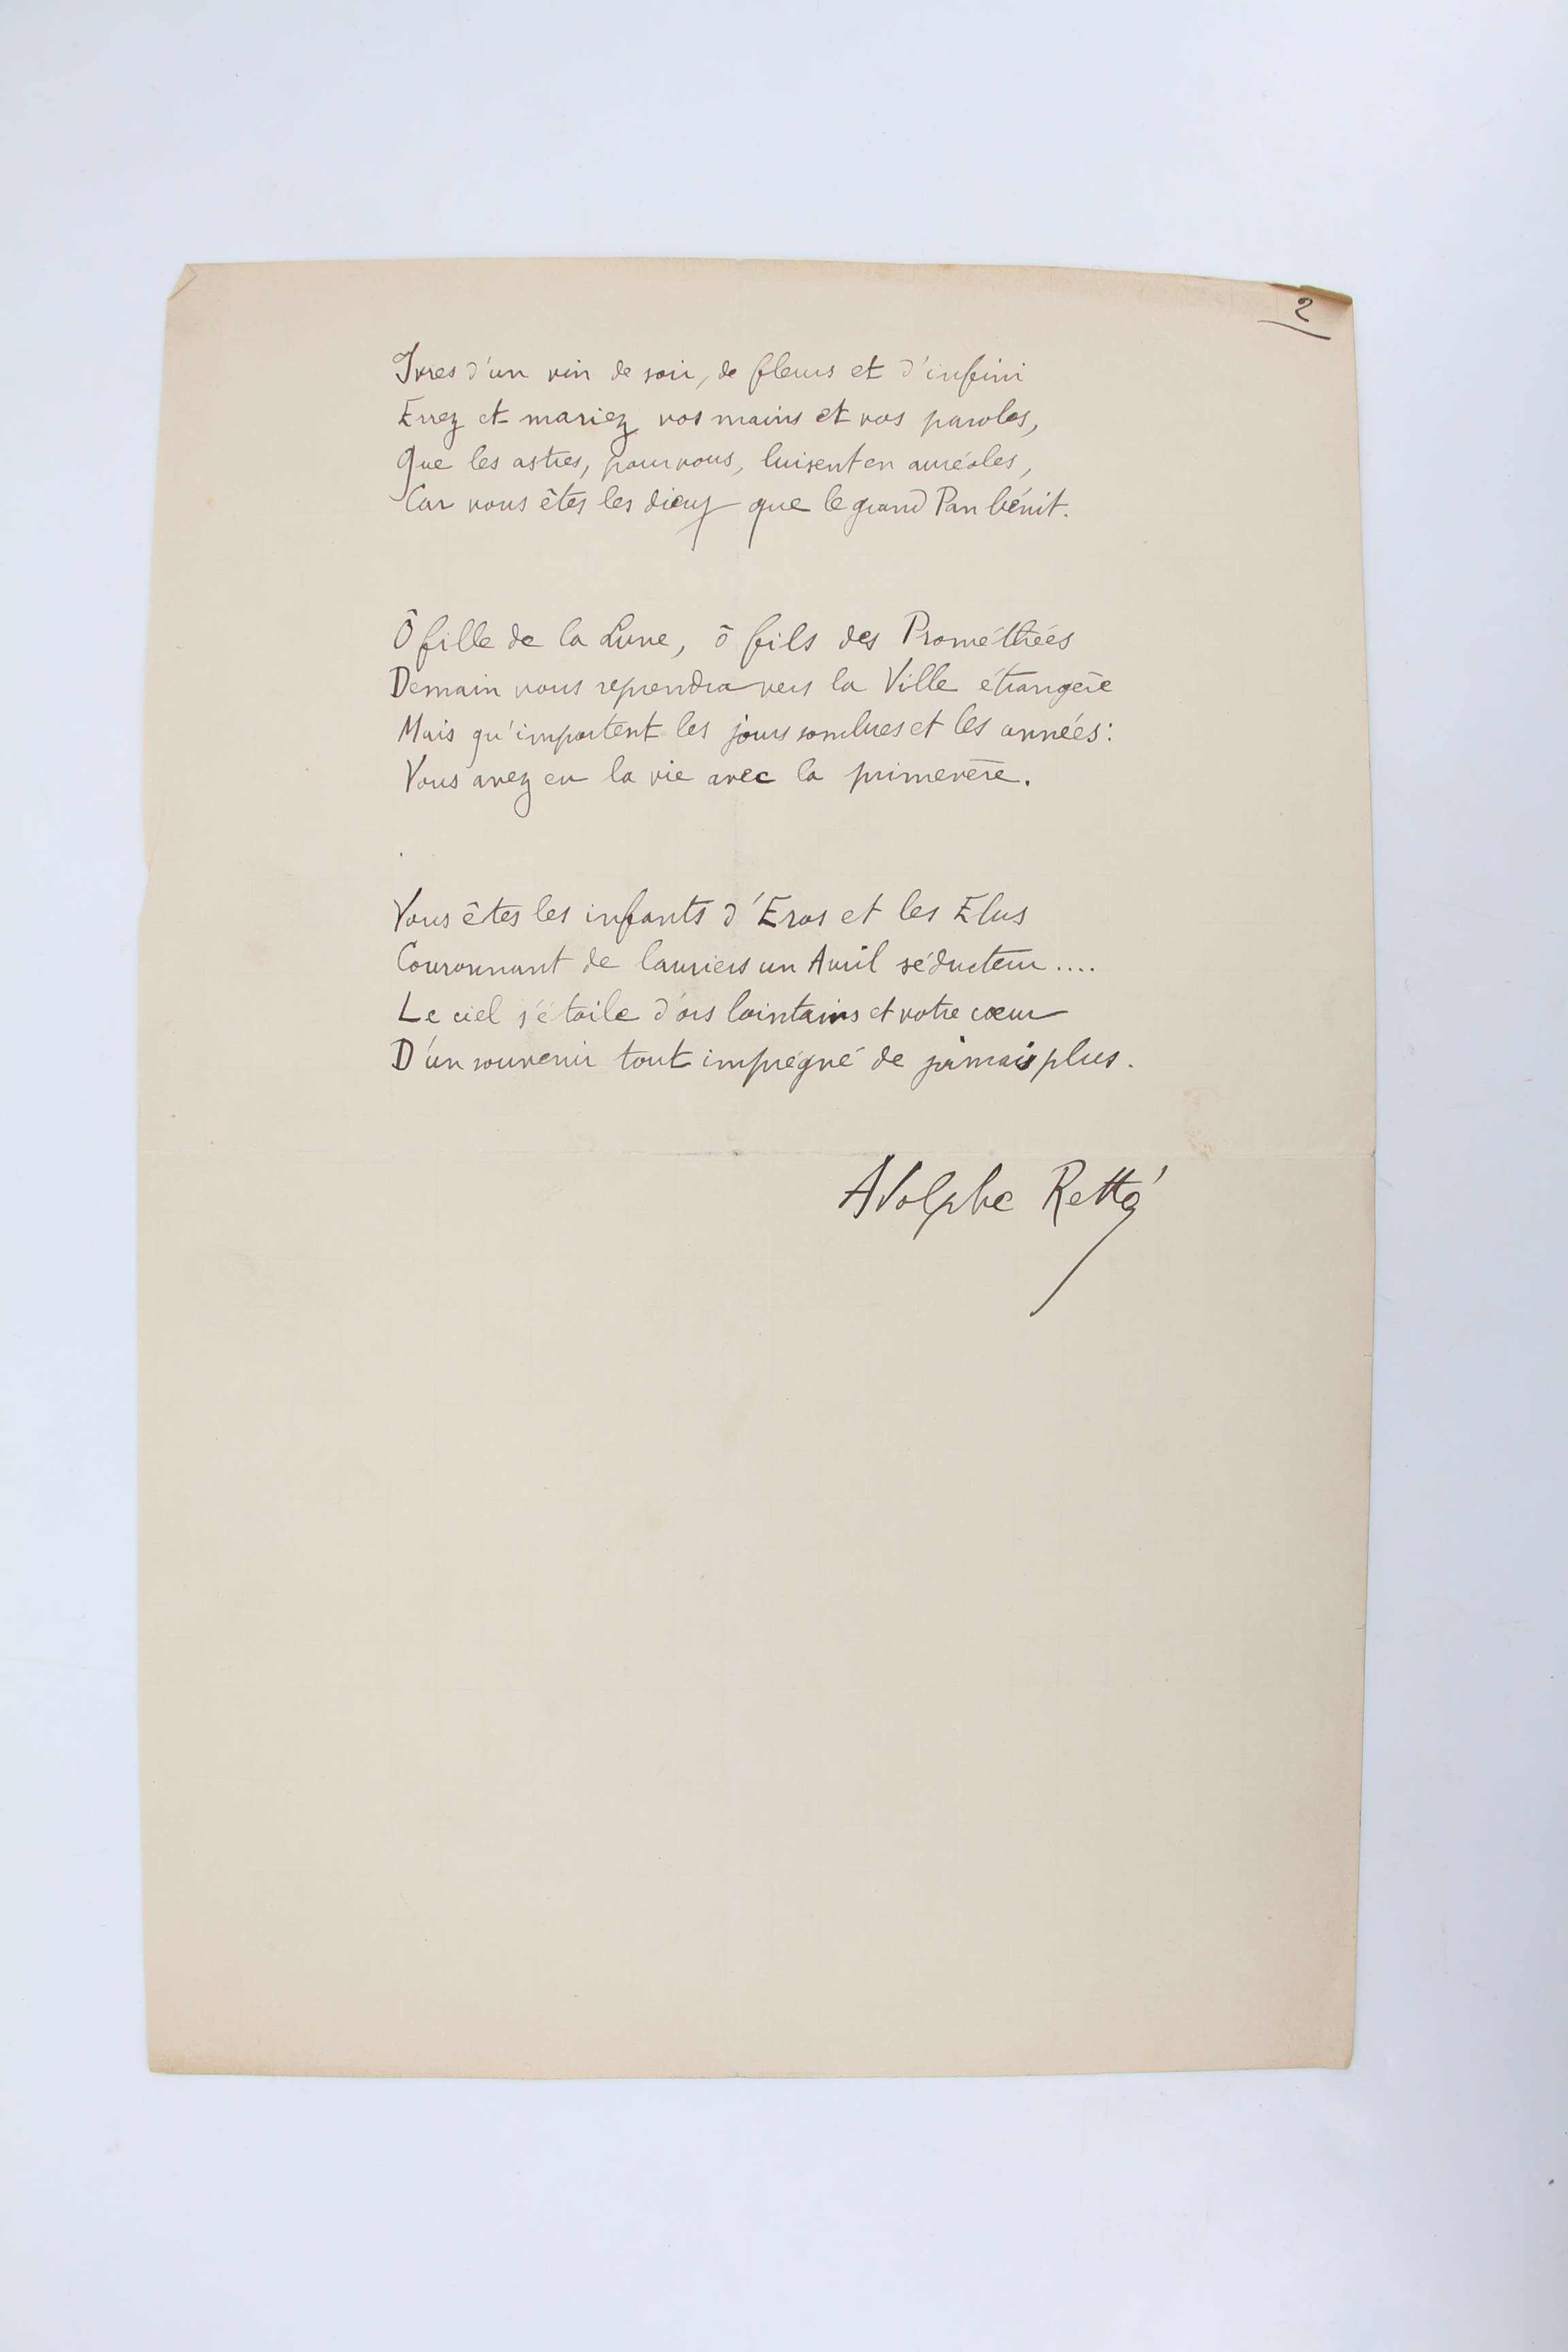 2
Ivres d'un vin de soir, de fleurs et d'infini
Errez et mariez vos mains et vos paroles,
Que les astres, pour vous, luisent en auréoles,
Car vous êtes les dieux que le grand Pan bénit.
Ô fille de la Lune, ô fils des Prométhées
Demain vous reprendra vers la Ville étrangère
Mais qu'importent les jours sombres et les années:
Vous avez eu la vie avec la primevère.
Vous êtes les infants d'Eros et les Elus
Couronnant de lauriers un Avril séducteur....
Le ciel s'étoile d'ors lointains et votre cœur
D'un souvenir tout imprégné de jamais plus.
Adolphe Retté